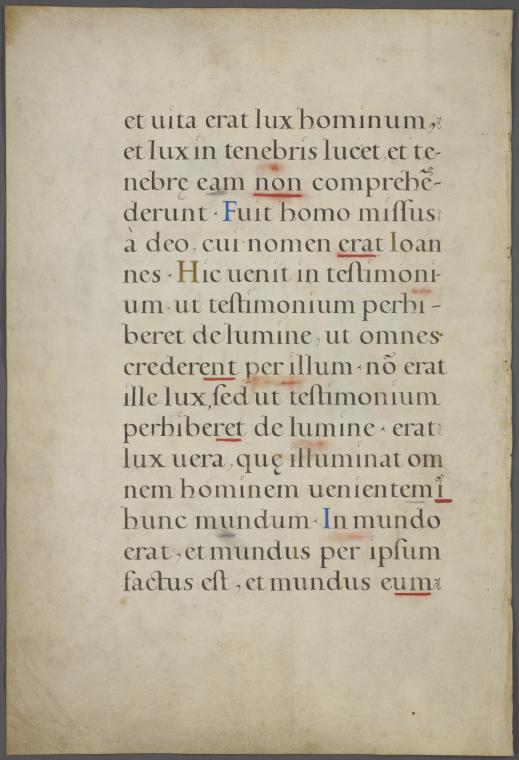 et uita erat lux hominum,
et lux in tenebris lucet, et te-
nebrę eam non comprehē-
derunt · Fuit homo missus
à deo, cui nomen erat Ioan
nes · Hic uenit in testimoni-
um · ut testimonium perhi-
beret de lumine, ut omnes
crederent per illum · nō erat
ille lux, sed ut testimonium
perhiberet de lumine · erat
lux uera, quę illuminat om
nem hominem uenientem ī
hunc mundum · In mundo
erat, et mundus per ipsum
factus est, et mundus eum